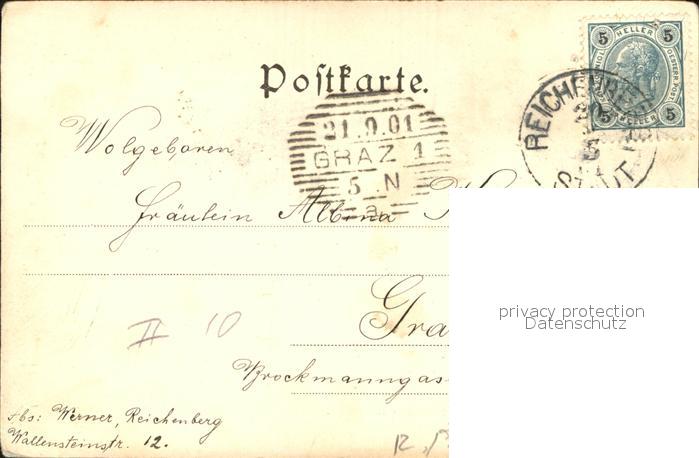 Postkarte.
5 HELLER 5
5 HELLER 5
21.9.01
GRAZ 1
5 N
a
REICHENBERG
STADT
Wolgeboren
Fräulein Albina
Gra
Brockmanngas
II 10
Abs: Werner, Reichenberg
Wallensteinstr. 12.
privacy protection
Datenschutz